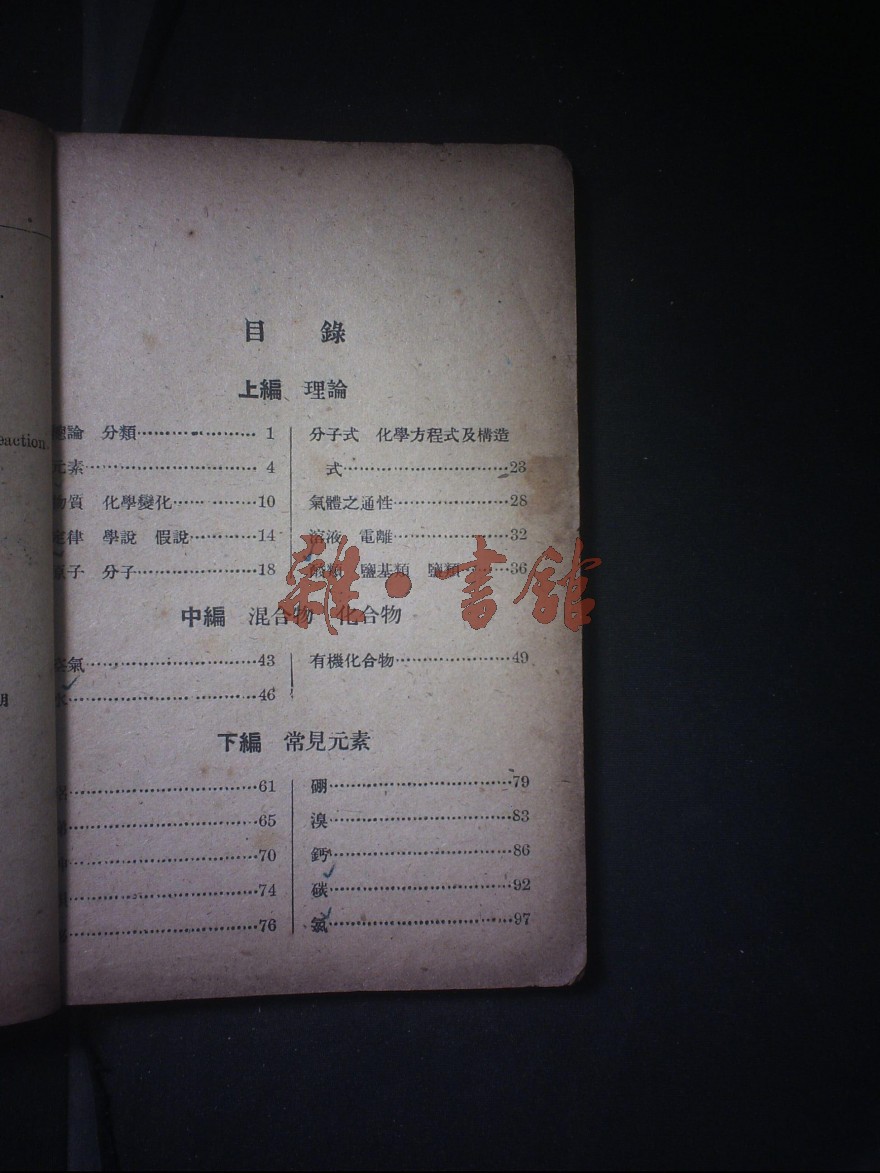 eaction.
目　錄
上編　理論
總論　分類 1
元素 4
物質　化學變化 10
定律　學說　假說 14
原子　分子 18
分子式　化學方程式及構造
式 23
氣體之通性 28
溶液　電離 32
酸類　鹽基類　鹽類 36
中編　混合物　化合物
空氣 43
水 46
有機化合物 49
下編　常見元素
61
65
70
74
76
硼 79
溴 83
鈣 86
碳 92
氯 97
雜·書館